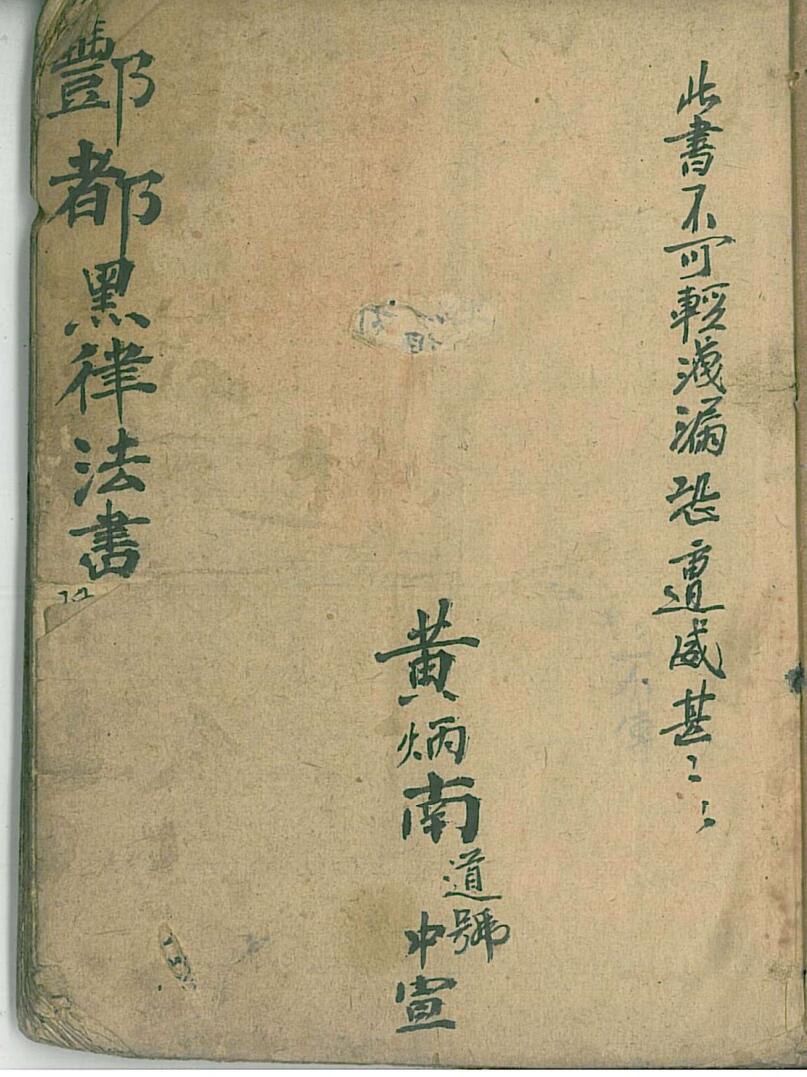 此書不可輕洩漏恐遭威甚〻〻
黄炳南道號
中宣
酆都黑律法書